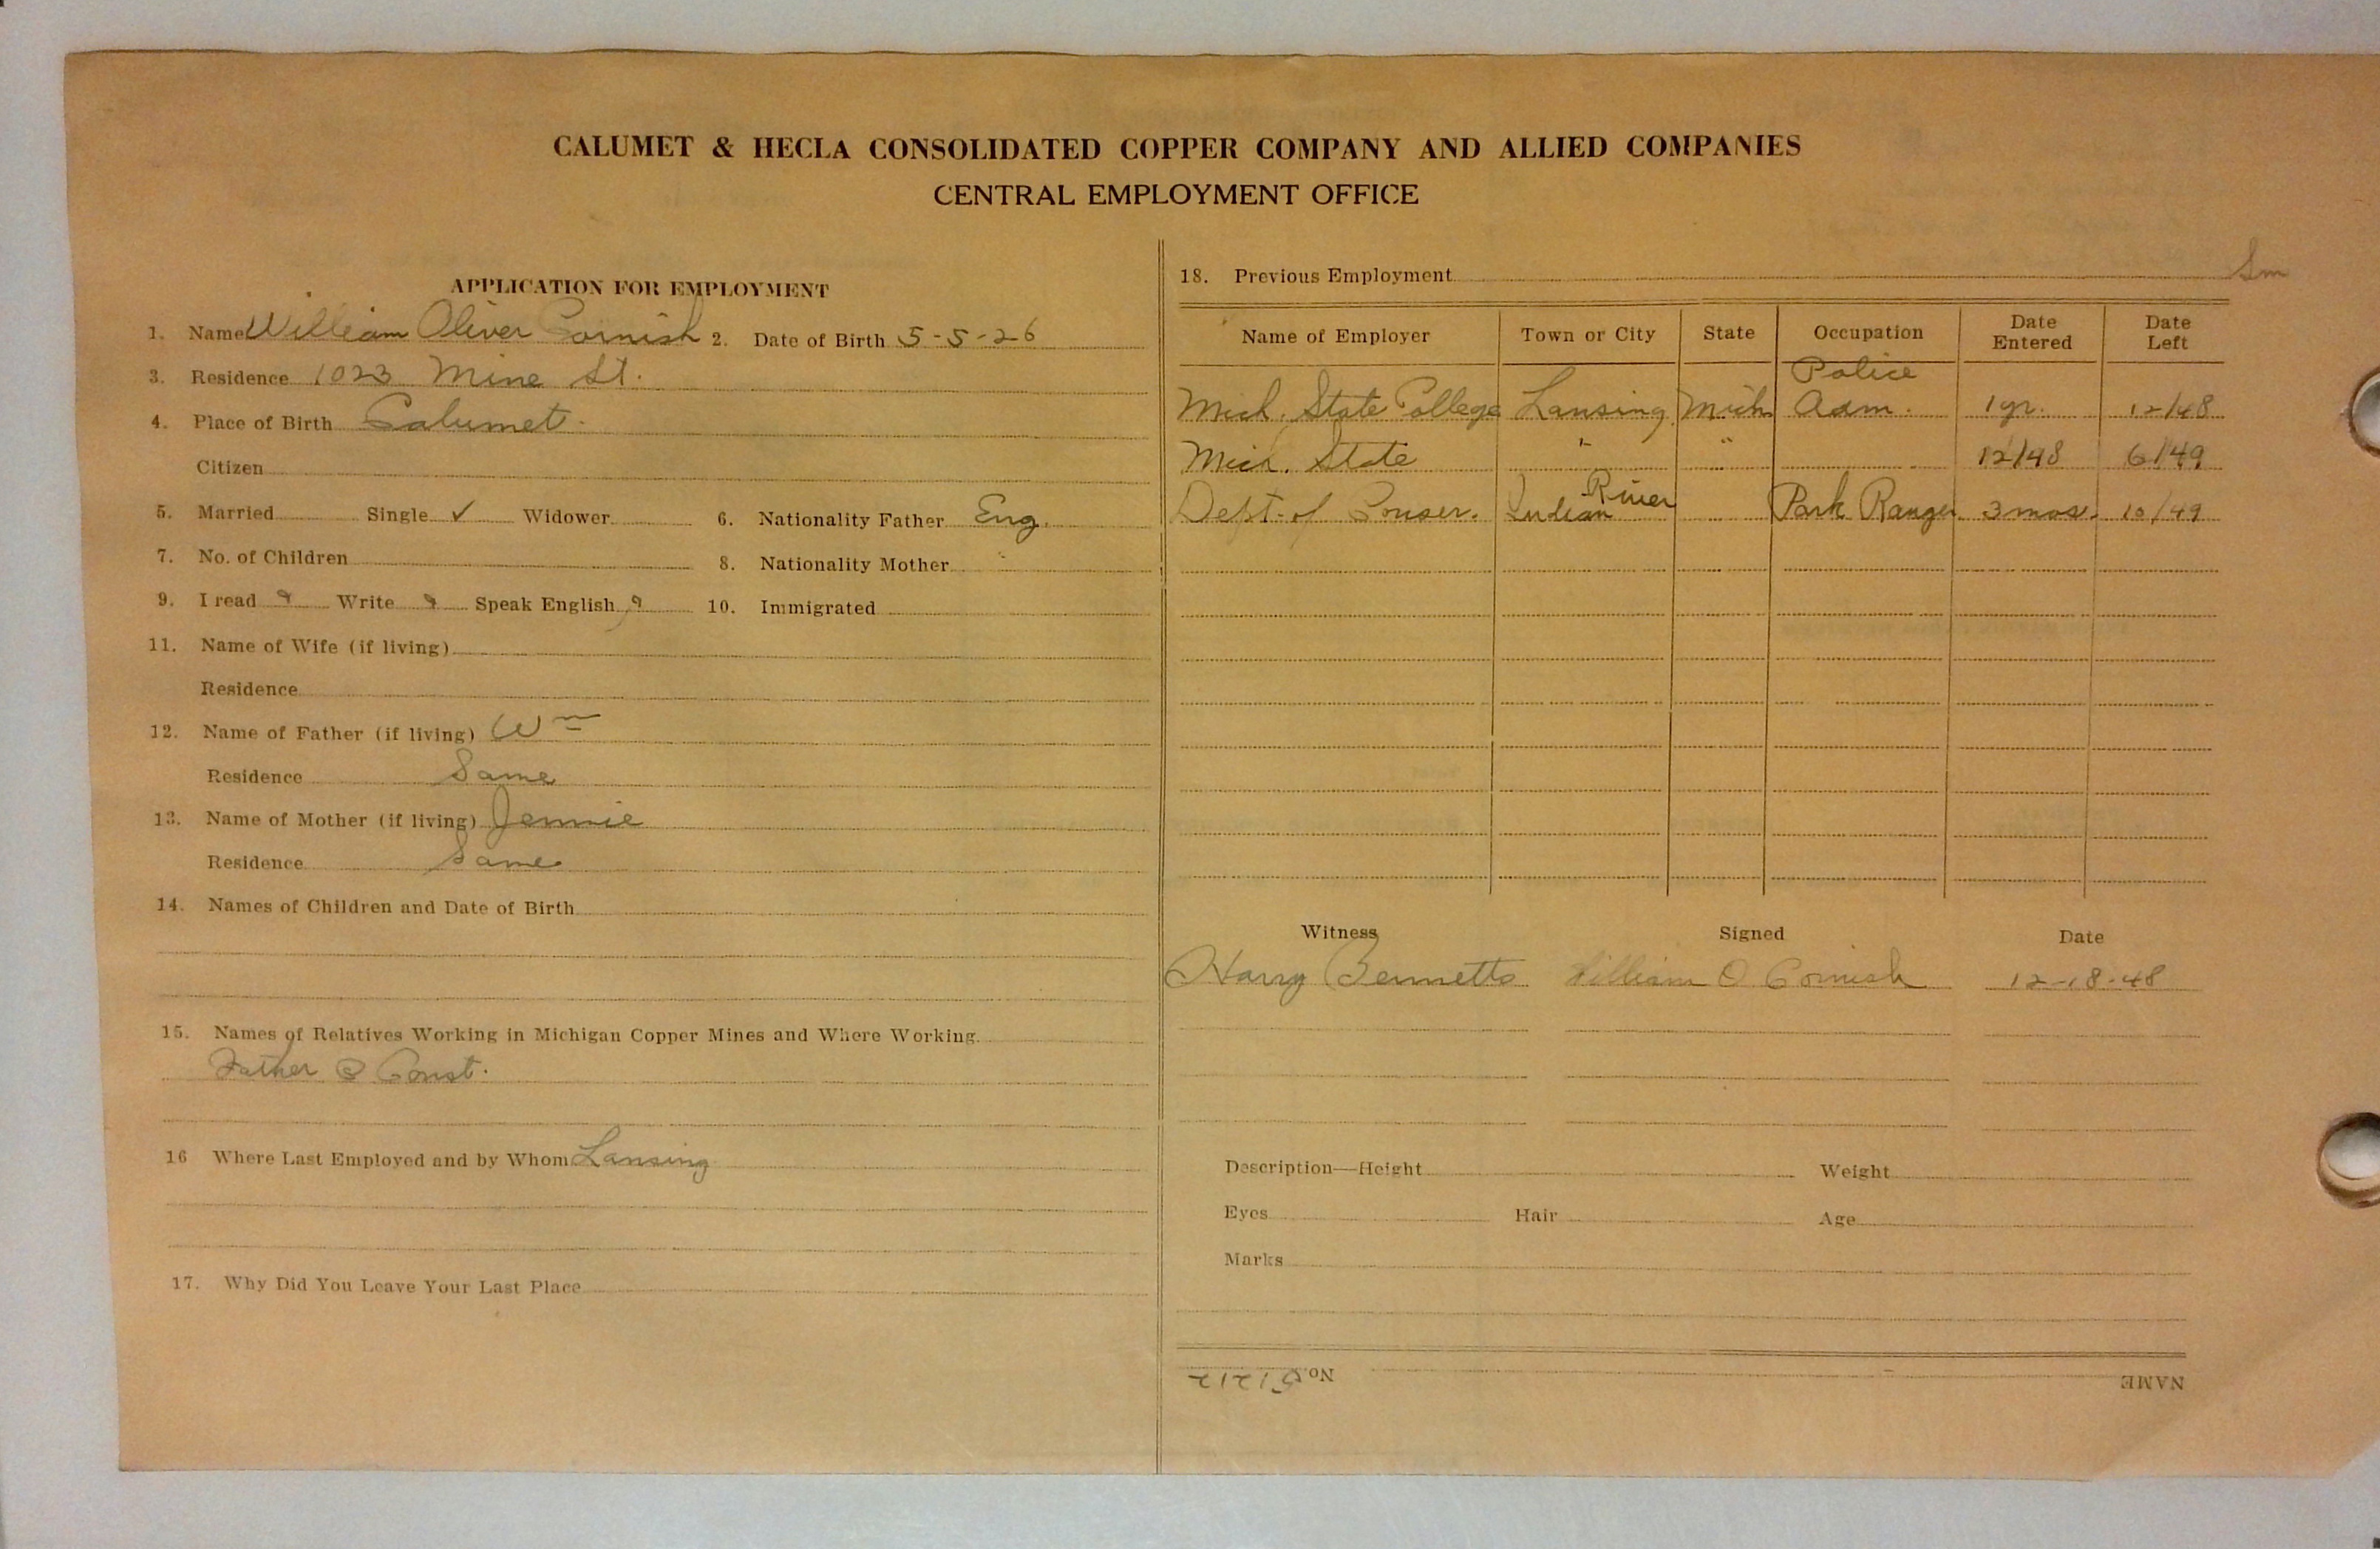 CALUMET & HECLA CONSOLIDATED COPPER COMPANY AND ALLIED COMPANIES
CENTRAL EMPLOYMENT OFFICE
APPLICATION FOR EMPLOYMENT
1. Name William Oliver Cornish 2. Date of Birth 5-5-26
3. Residence 1023 Mine St.
4. Place of Birth Calumet.
Citizen
5. Married Single ✓ Widower 6. Nationality Father Eng.
7. No. of Children 8. Nationality Mother
9. I read Write Speak English 10. Immigrated
11. Name of Wife (if living)
Residence
12. Name of Father (if living) Wm
Residence Same
13. Name of Mother (if living) Jennie
Residence Same
14. Names of Children and Date of Birth
15. Names of Relatives Working in Michigan Copper Mines and Where Working.
Father Const.
16 Where Last Employed and by Whom Lansing
17. Why Did You Leave Your Last Place
18. Previous Employment
Name of Employer Town or City State Occupation Date Entered Date Left
Police
Mich. State College Lansing Mich Adm. 1 yr. 12/48
Mich. State " " 12/48 6/49
River
Dept. of Conser. Indian Park Ranger 3 mos. 10/49
Witness Signed Date
Harry Bennetts William O Cornish 12-18-48
Description—Height Weight
Eyes Hair Age
Marks
NAME No. 51212